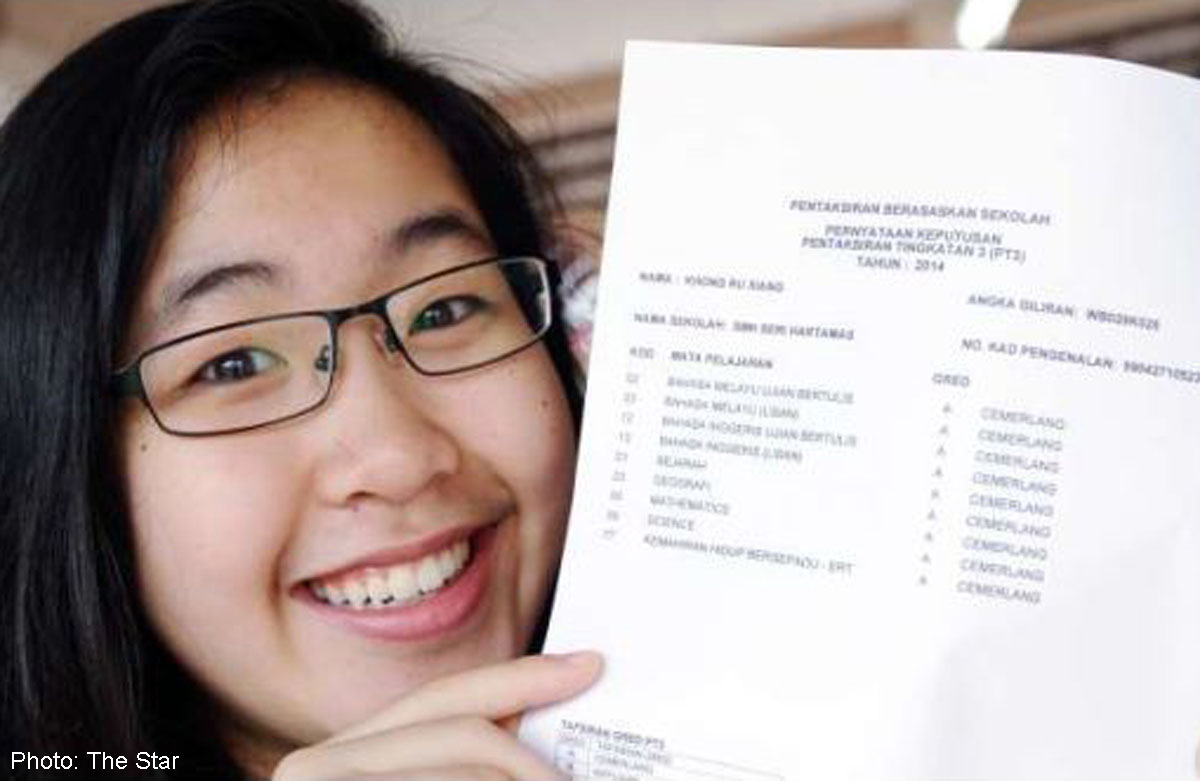 PENTAKSIRAN BERASASKAN SEKOLAH
PERNYATAAN KEPUTUSAN
PENTAKSIRAN TINGKATAN 3 (PT3)
TAHUN : 2014
NAMA : KHONG RU XIANG
ANGKA GILIRAN:
NAMA SEKOLAH: SMK SERI HARTAMAS
NO. KAD PENGENALAN:
KOD MATA PELAJARAN GRED
02 BAHASA MELAYU UJIAN BERTULIS A CEMERLANG
03 BAHASA MELAYU (LISAN) A CEMERLANG
12 BAHASA INGGERIS UJIAN BERTULIS A CEMERLANG
13 BAHASA INGGERIS (LISAN) A CEMERLANG
21 SEJARAH A CEMERLANG
23 GEOGRAFI A CEMERLANG
MATHEMATICS A CEMERLANG
SCIENCE A CEMERLANG
KEMAHIRAN HIDUP BERSEPADU - ERT A CEMERLANG
TAFSIRAN GRED PT3
GRED TAFSIRAN GRED
A CEMERLANG
Photo: The Star